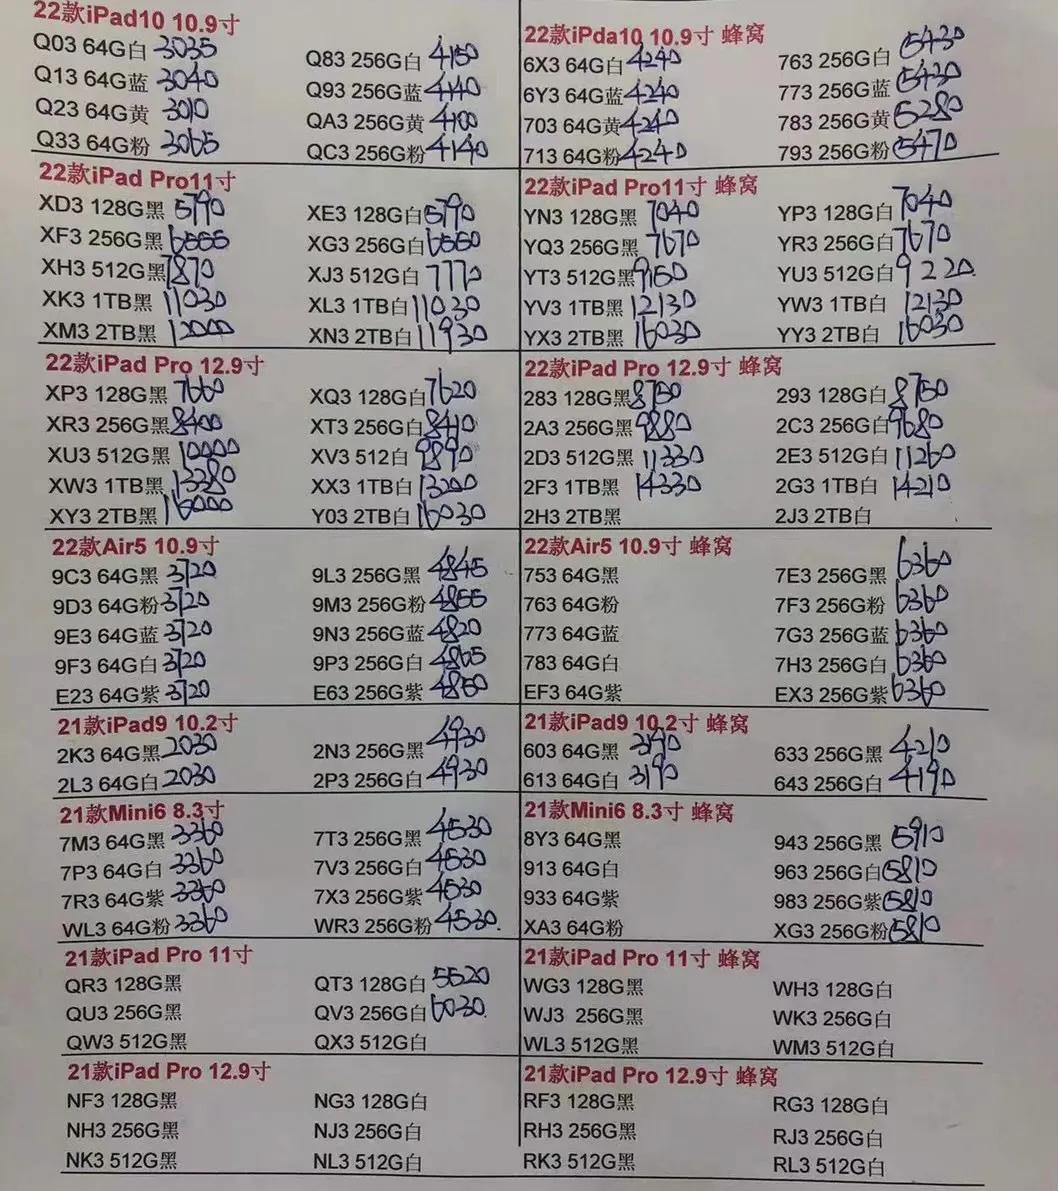 22款iPad10 10.9寸
Q03 64G白 3035 Q83 256G白 4150
Q13 64G蓝 3040 Q93 256G蓝 4140
Q23 64G黄 3010 QA3 256G黄 4100
Q33 64G粉 3065 QC3 256G粉 4140
22款iPda10 10.9寸 蜂窝
6X3 64G白 4240 763 256G白 5430
6Y3 64G蓝 4240 773 256G蓝 5430
703 64G黄 4240 783 256G黄 5280
713 64G粉 4240 793 256G粉 5470
22款iPad Pro11寸
XD3 128G黑 5790 XE3 128G白 5790
XF3 256G黑 6555 XG3 256G白 6550
XH3 512G黑 7870 XJ3 512G白 7770
XK3 1TB黑 11030 XL3 1TB白 11030
XM3 2TB黑 12000 XN3 2TB白 11930
22款iPad Pro11寸 蜂窝
YN3 128G黑 7040 YP3 128G白 7040
YQ3 256G黑 7670 YR3 256G白 7670
YT3 512G黑 9150 YU3 512G白 9220.
YV3 1TB黑 12130 YW3 1TB白 12130
YX3 2TB黑 16030 YY3 2TB白 16030
22款iPad Pro 12.9寸
XP3 128G黑 7660 XQ3 128G白 7620
XR3 256G黑 8400 XT3 256G白 8410
XU3 512G黑 10000 XV3 512白 9890
XW3 1TB黑 13280 XX3 1TB白 13200
XY3 2TB黑 16000 Y03 2TB白 16030
22款iPad Pro 12.9寸 蜂窝
283 128G黑 8750 293 128G白 8750
2A3 256G黑 9880 2C3 256G白 9680
2D3 512G黑 11330 2E3 512G白 11260
2F3 1TB黑 14330 2G3 1TB白 14210
2H3 2TB黑 2J3 2TB白
22款Air5 10.9寸
9C3 64G黑 3720 9L3 256G黑 4845
9D3 64G粉 3720 9M3 256G粉 4855
9E3 64G蓝 3720 9N3 256G蓝 4820
9F3 64G白 3720 9P3 256G白 4865
E23 64G紫 3720 E63 256G紫 4850
22款Air5 10.9寸 蜂窝
753 64G黑 7E3 256G黑 6360
763 64G粉 7F3 256G粉 6360
773 64G蓝 7G3 256G蓝 6360
783 64G白 7H3 256G白 6360
EF3 64G紫 EX3 256G紫 6360
21款iPad9 10.2寸
2K3 64G黑 2030 2N3 256G黑 4930
2L3 64G白 2030 2P3 256G白 4930
21款iPad9 10.2寸 蜂窝
603 64G黑 3190 633 256G黑 4210
613 64G白 3190 643 256G白 4190
21款Mini6 8.3寸
7M3 64G黑 3360 7T3 256G黑 4530
7P3 64G白 3360 7V3 256G白 4530
7R3 64G紫 3360 7X3 256G紫 4530
WL3 64G粉 3360 WR3 256G粉 4530.
21款Mini6 8.3寸 蜂窝
8Y3 64G黑 943 256G黑 5910
913 64G白 963 256G白 5810
933 64G紫 983 256G紫 5810
XA3 64G粉 XG3 256G粉 5810
21款iPad Pro 11寸
QR3 128G黑 QT3 128G白 5520
QU3 256G黑 QV3 256G白 6030.
QW3 512G黑 QX3 512G白
21款iPad Pro 11寸 蜂窝
WG3 128G黑 WH3 128G白
WJ3 256G黑 WK3 256G白
WL3 512G黑 WM3 512G白
21款iPad Pro 12.9寸
NF3 128G黑 NG3 128G白
NH3 256G黑 NJ3 256G白
NK3 512G黑 NL3 512G白
21款iPad Pro 12.9寸 蜂窝
RF3 128G黑 RG3 128G白
RH3 256G黑 RJ3 256G白
RK3 512G黑 RL3 512G白